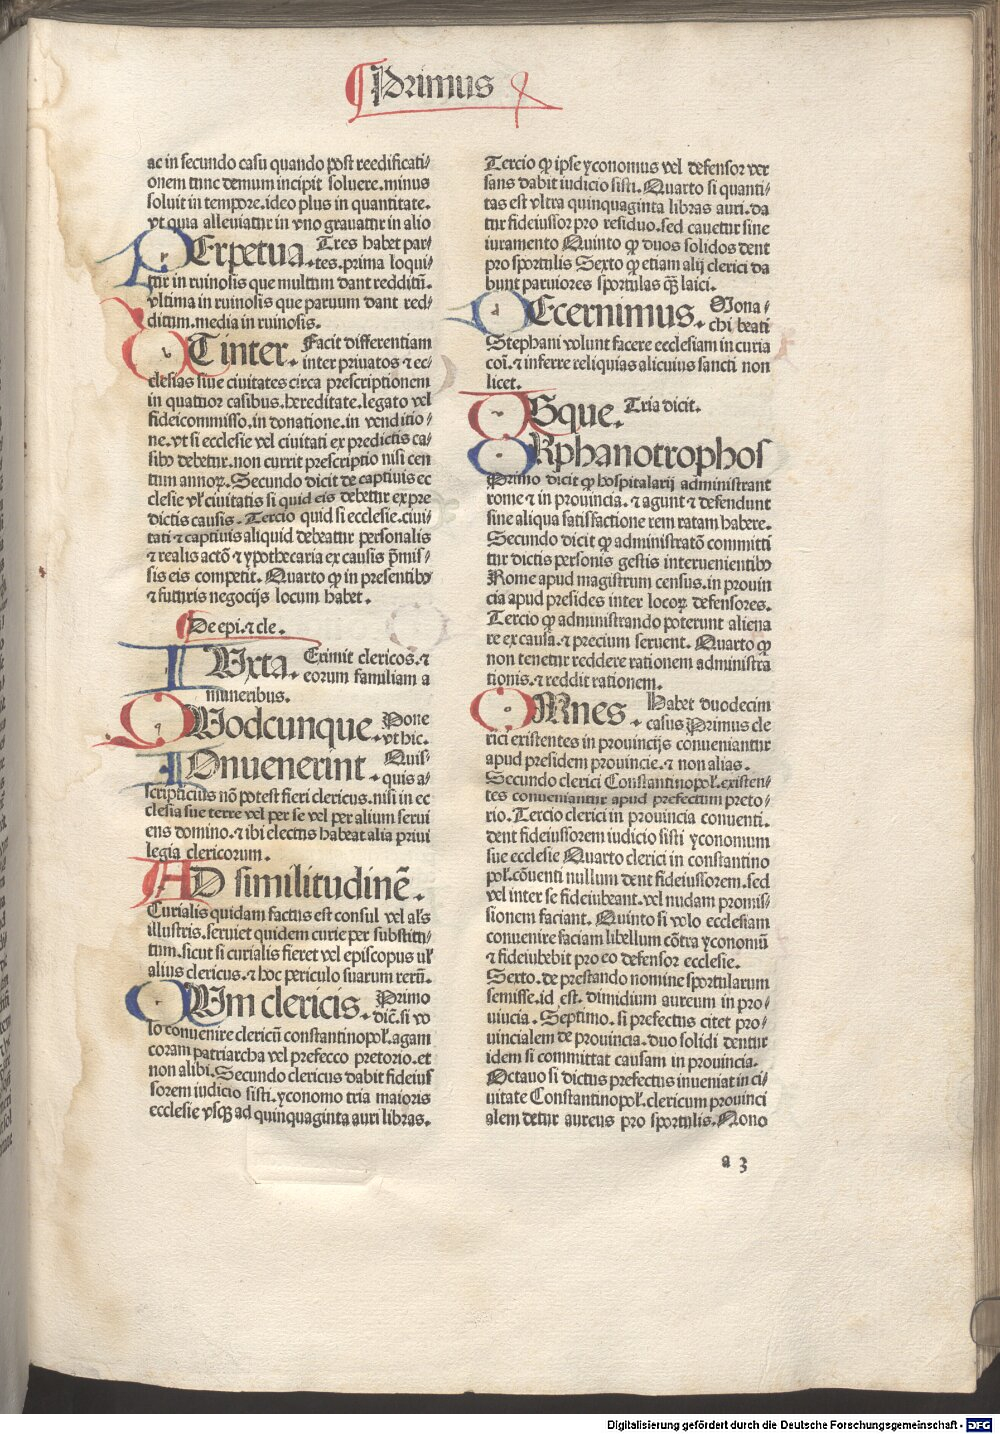 Primus
ac in secundo casu quando post reedificati⸗
onem tunc demum incipit soluere. minus
soluit in tempore. ideo plus in quantitate.
vt quia alleuiatur in vno grauatur in alio
PErpetua. Tres habet par⸗
tes. prima loqui⸗
tur in ruinosis que multum dant redditū.
vltima in ruinosis que paruum dant red⸗
ditum. media in ruinosis.
UT inter. Facit differentiam
inter priuatos ⁊ ec⸗
clesias siue ciuitates circa prescriptionem
in quattuor casibus. hereditate. legato vel
fideicommisso. in donatione. in venditio⸗
ne. vt si ecclesie vel ciuitati ex predictis ca⸗
sibꝰ debetur. non currit prescriptio nisi cen
tum annoꝝ. Secundo dicit de captiuis ec
clesie vł ciuitatis si quid eis debetur ex pre
dictis causis. Tercio quid si ecclesie. ciui⸗
tati ⁊ captiuis aliquid debeatur personalis
⁊ realis actō ⁊ ypothecaria ex causis p̄mis⸗
sis eis competit. Quarto ꝙ in presentibꝰ
⁊ futuris negocijs locum habet.
De epi. ⁊ cle.
IUxta. Eximit clericos. ⁊
eorum familiam a
muneribus.
QUodcunque. Pone
vt hic.
IOnuenerint. Quis⸗
quis a⸗
scripticius nō potest fieri clericus. nisi in ec
clesia sue terre vel per se vel per alium serui
ens domino. ⁊ ibi electus habeat alia priui
legia clericorum.
AD similitudinē.
Curialis quidam factus est consul vel ał's
illustris. seruiet quidem curie per substitu⸗
tum. sicut si curialis fieret vel episcopus vł
alius clericus. ⁊ hoc periculo suarum rerū.
CUm clericis. Primo
dic̄. si vo
lo conuenire clericū constantinopoł. agam
coram patriarcha vel prefecco pretorio. et
non alibi. Secundo clericus dabit fideius
sorem iudicio sisti. yconomo tria maioris
ecclesie vsqꝫ ad quinquaginta auri libras.
Tercio ꝙ ipse yconomus vel defensor ver
sans dabit iudicio sisti. Quarto si quanti⸗
tas est vltra quinquaginta libras auri. da
tur fideiussor pro residuo. sed cauetur sine
iuramento Quinto ꝙ duos solidos dent
pro sportulis Sexto ꝙ etiam alij clerici da
bunt paruiores sportulas qꝫ̄ laici.
DEcernimus. Mona⸗
chi beati
Stephani volunt facere ecclesiam in curia
coī. ⁊ inferre reliquias alicuius sancti non
licet.
USque. Tria dicit.
ORphanotrophos
Primo dicit ꝙ hospitalarij administrant
rome ⁊ in prouincia. ⁊ agunt ⁊ defendunt
sine aliqua satisfactione rem ratam habere.
Secundo dicit ꝙ administratō committi
tur dictis personis gestis interuenientibꝰ
Rome apud magistrum census. in prouin
cia apud presides inter locoꝝ defensores.
Tercio ꝙ administrando poterunt aliena
re ex causa. ⁊ precium seruent. Quarto ꝙ
non tenetur reddere rationem administra
tionis. ⁊ reddit rationem.
OMnes. Habet duodecim
casus Primus cle
rici existentes in prouincijs conueniantur
apud presidem prouincie. ⁊ non alias.
Secundo clerici Constantinopoł. existen⸗
tes conueniantur apud prefectum preto⸗
rio. Tercio clerici in prouincia conuenti.
dent fideiussorem iudicio sisti yconomum
sue ecclesie Quarto clerici in constantino
poł. cōuenti nullum dent fideiussorem. sed
vel inter se fideiubeant. vel nudam promis⸗
sionem faciant. Quinto si volo ecclesiam
conuenire faciam libellum cōtra yconomū
⁊ fideiubebit pro eo defensor ecclesie.
Sexto. de prestando nomine sportularum
semisse. id est. dimidium aureum in pro⸗
uiucia. Septimo. si prefectus citet pro⸗
uincialem de prouincia. duo solidi dentur
idem si committat causam in prouincia.
Octauo si dictus prefectus inueniat in ci⸗
uitate Constantinopoł. clericum prouinci
alem detur aureus pro sportulis. Nono
a 3
Digitalisierung gefördert durch die Deutsche Forschungsgemeinschaft - DFG